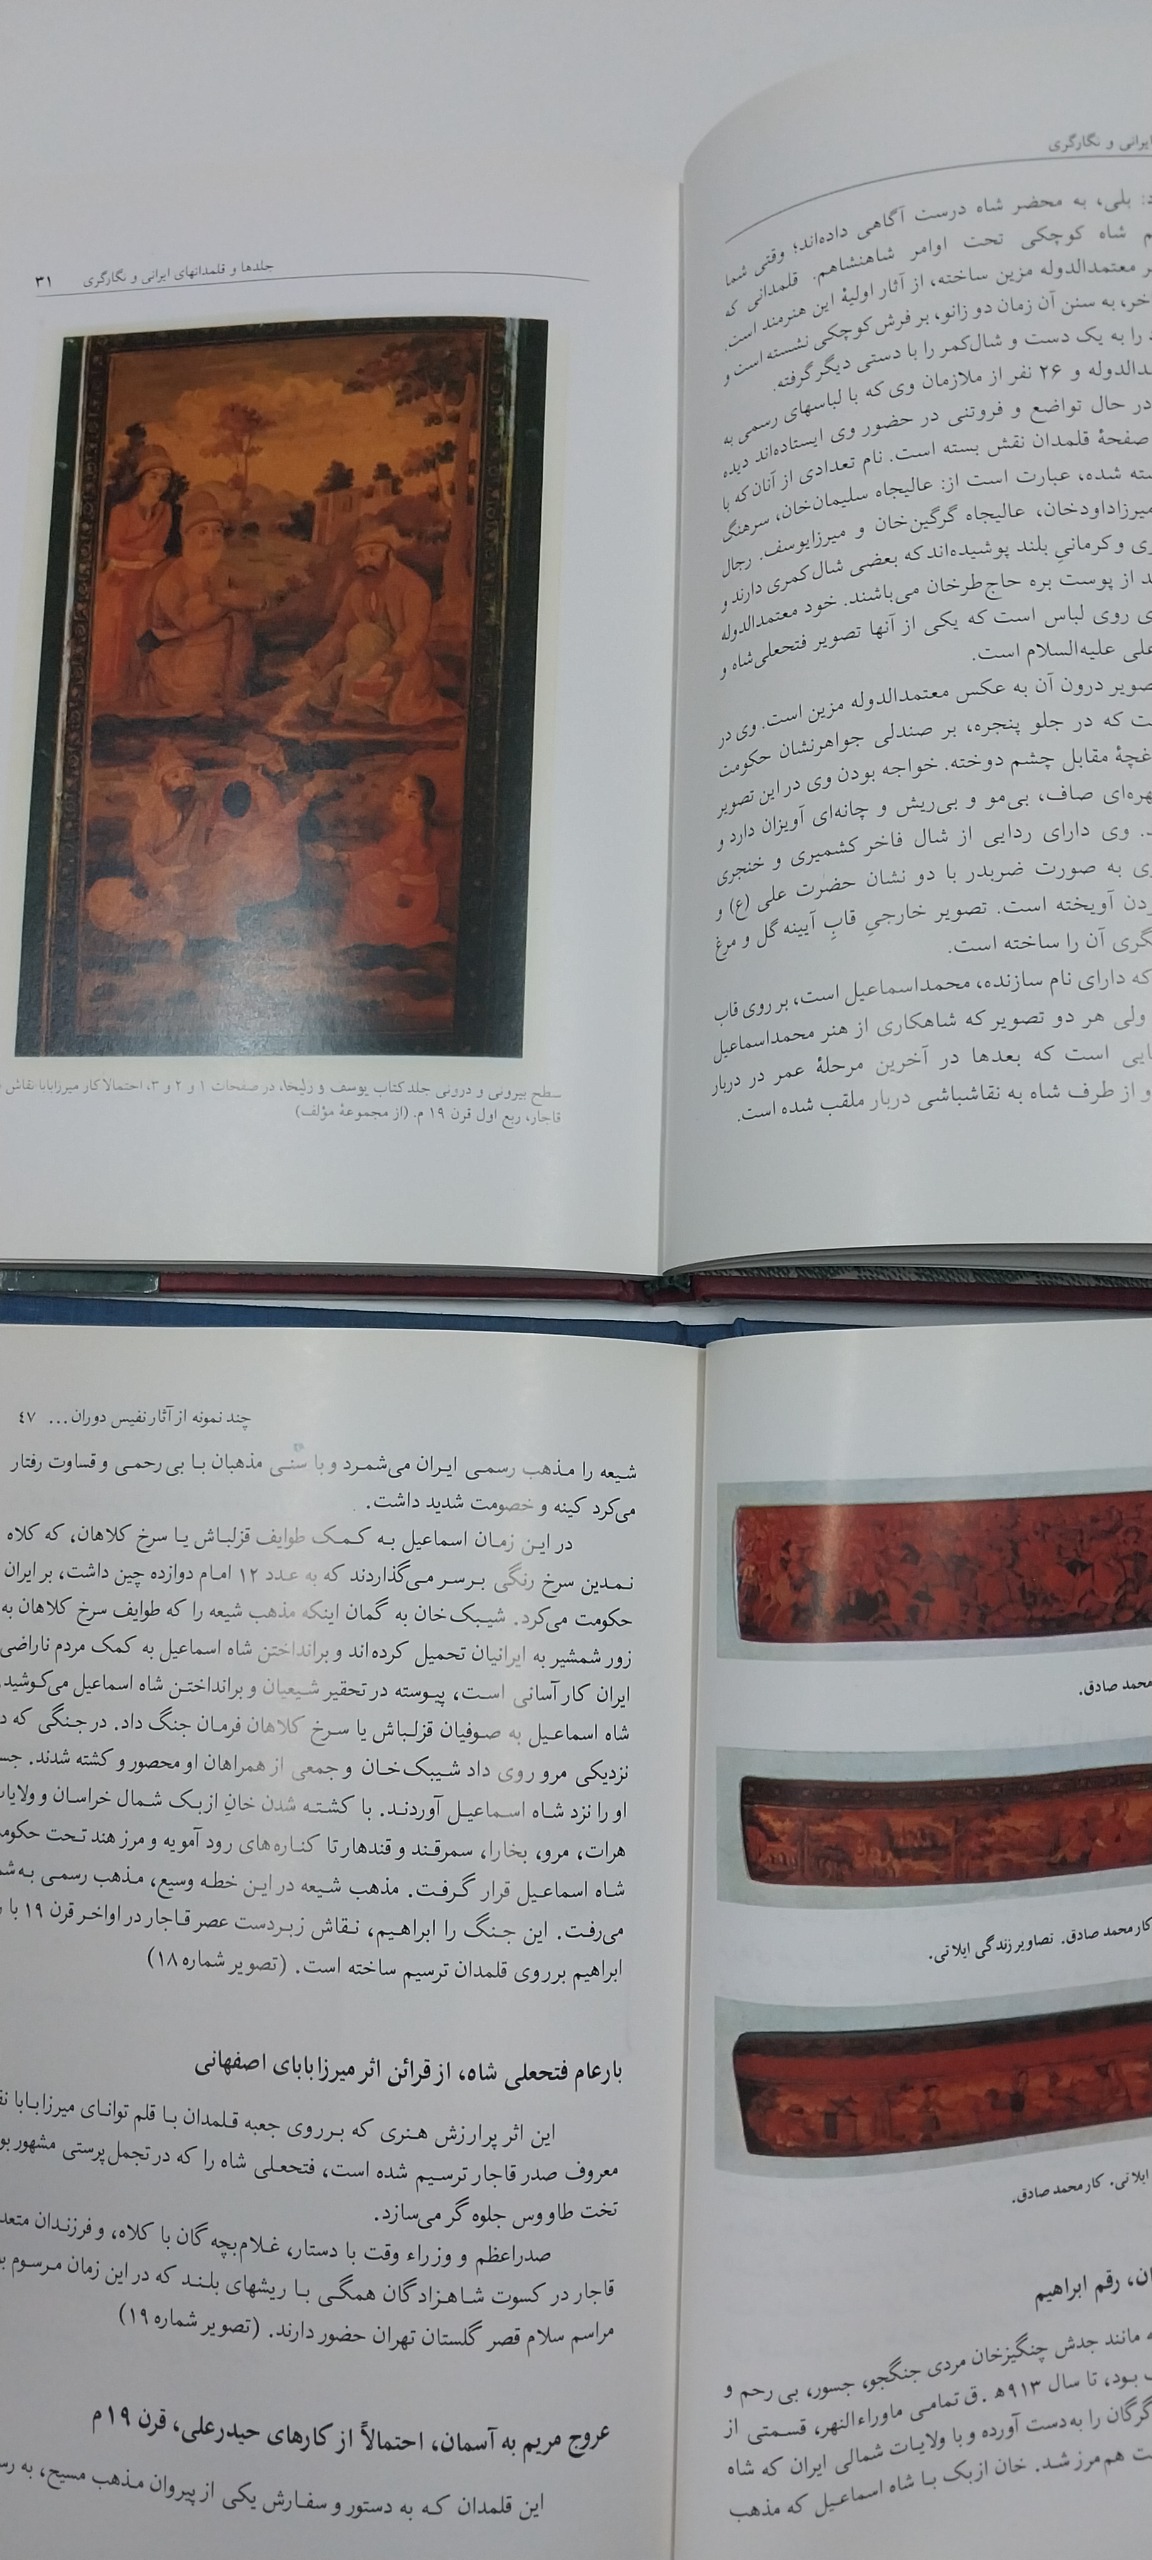 ایرانی و نگارگری
بلی، به محضر شاه درست آگاهی داده‌اند؛ وقتی شما
شاه کوچکی تحت اوامر شاهنشاهم. قلمدانی که
معتمدالدوله مزین ساخته، از آثار اولیهٔ این هنرمند است.
به سنن آن زمان دو زانو، بر فرش کوچکی نشسته است و
را به یک دست و شال‌کمر را با دستی دیگر گرفته.
و ۲۶ نفر از ملازمان وی که با لباسهای رسمی به
در حال تواضع و فروتنی در حضور وی ایستاده‌اند دیده
صفحهٔ قلمدان نقش بسته است. نام تعدادی از آنان که با
شده، عبارت است از: عالیجاه سلیمان‌خان، سرهنگ
میرزاداودخان، عالیجاه گرگین‌خان و میرزایوسف. رجال
و کرمانیِ بلند پوشیده‌اند که بعضی شال‌کمری دارند و
از پوست بره حاج‌طرخان می‌باشند. خود معتمدالدوله
روی لباس است که یکی از آنها تصویر فتحعلی‌شاه و
علی علیه‌السلام است.
تصویر درون آن به عکس معتمدالدوله مزین است. وی در
که در جلو پنجره، بر صندلی جواهرنشان حکومت
مقابل چشم دوخته. خواجه بودن وی در این تصویر
صاف، بی‌مو و بی‌ریش و چانه‌ای آویزان دارد و
وی دارای ردایی از شال فاخر کشمیری و خنجری
به صورت ضربدر با دو نشان حضرت علی (ع) و
آویخته است. تصویر خارجیِ قابِ آیینه گل و مرغ
آن را ساخته است.
که دارای نام سازنده، محمداسماعیل است، بر روی قاب
ولی هر دو تصویر که شاهکاری از هنر محمداسماعیل
است که بعدها در آخرین مرحلهٔ عمر در دربار
و از طرف شاه به نقاشباشی دربار ملقب شده است.
جلدها و قلمدانهای ایرانی و نگارگری ۳۱
سطح بیرونی و درونی جلد کتاب یوسف و زلیخا، در صفحات ۱ و ۲ و ۳، احتمالاکار میرزابابا نقاش
قاجار، ربع اول قرن ۱۹ م. (از مجموعهٔ مؤلف)
محمد صادق.
کار محمد صادق. تصاویر زندگی ایلاتی.
ایلاتی. کار محمد صادق.
رقم ابراهیم
مانند جدش چنگیزخان مردی جنگجو، جسور، بی رحم و
بود، تا سال ۹۱۳ه‍ .ق تمامی ماوراءالنهر، قسمتی از
گرگان را به‌دست آورده و با ولایات شمالی ایران که شاه
هم‌مرز شد. خان ازبک با شاه اسماعیل که مذهب
چند نمونه از آثار نفیس دوران... ٤٧
شیعه را مذهب رسمی ایران می‌شمرد و با سنی مذهبان با بی رحمی و قساوت رفتار
می‌کرد کینه و خصومت شدید داشت.
در این زمان اسماعیل به کمک طوایف قزلباش یا سرخ کلاهان، که کلاه
نمدین سرخ رنگی بر سر می‌گذاردند که به عدد ۱۲ امام دوازده چین داشت، بر ایران
حکومت می‌کرد. شیبک‌خان به گمان اینکه مذهب شیعه را که طوایف سرخ کلاهان به
زور شمشیر به ایرانیان تحمیل کرده‌اند و برانداختن شاه اسماعیل به کمک مردم ناراضی
ایران کار آسانی است، پیوسته در تحقیر شیعیان و برانداختن شاه اسماعیل می‌کوشید.
شاه اسماعیل به صوفیان قزلباش یا سرخ کلاهان فرمان جنگ داد. در جنگی که
نزدیکی مرو روی داد شیبک‌خان و جمعی از همراهان او محصور و کشته شدند.
او را نزد شاه اسماعیل آوردند. با کشته شدن خانِ ازبک شمال خراسان و
هرات، مرو، بخارا، سمرقند و قندهار تا کناره‌های رود آمویه و مرز هند تحت
شاه اسماعیل قرار گرفت. مذهب شیعه در این خطه وسیع، مذهب رسمی
می‌رفت. این جنگ را ابراهیم، نقاش زبردست عصر قاجار در اواخر قرن ۱۹ با
ابراهیم بر روی قلمدان ترسیم ساخته است. (تصویر شماره ۱۸)
بارعام فتحعلی شاه، از قرائن اثر میرزابابای اصفهانی
این اثر پرارزش هنری که بر روی جعبه قلمدان با قلم توانای میرزابابا
معروف صدر قاجار ترسیم شده است، فتحعلی شاه را که در تجمل‌پرستی مشهور
تخت طاووس جلوه گر می‌سازد.
صدراعظم و وزراء وقت با دستار، غلام‌بچه گان با کلاه، و فرزندان
قاجار در کسوت شاهزادگان همگی با ریشهای بلند که در این زمان مرسوم
مراسم سلام قصر گلستان تهران حضور دارند. (تصویر شماره ۱۹)
عروج مریم به آسمان، احتمالاً از کارهای حیدرعلی، قرن ۱۹م
این قلمدان که به دستور و سفارش یکی از پیروان مذهب مسیح، به